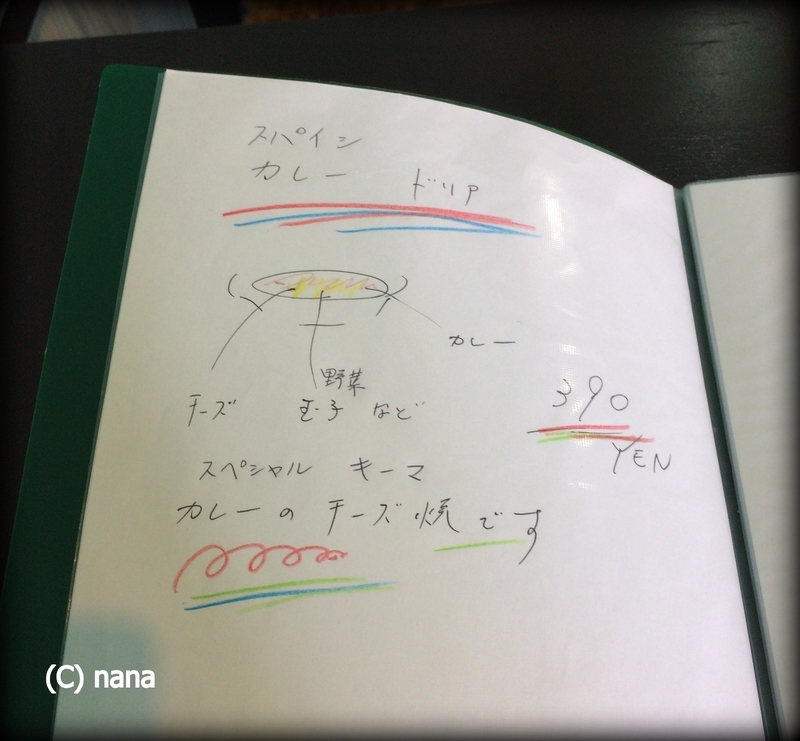 スパイシ
カレー ドリア
カレー
野菜
チーズ 玉子 など
390
YEN
スペシャル キーマ
カレーの チーズ焼です
(C) nana